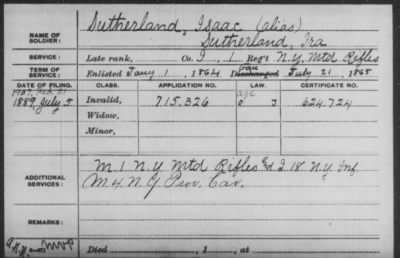 NAME OF SOLDIER: Sutherland, Isaac (alias)
Sutherland, Ira
SERVICE: Late rank, Co. I, 1 Reg't N.Y. Mtd Rifles
TERM OF SERVICE: Enlisted Jany 1, 1864 Discharged July 21, 1865
DATE OF FILING. CLASS. APPLICATION NO. LAW. CERTIFICATE NO.
age
1889, July 5 Invalid, 715.326 624.724
Widow,
Minor,
ADDITIONAL SERVICES: M 1 N.Y. Mtd Rifles & I 18 N.Y. Inf.
M. 4 N.Y. Prov. Cav.
REMARKS:
Died , 1 , at